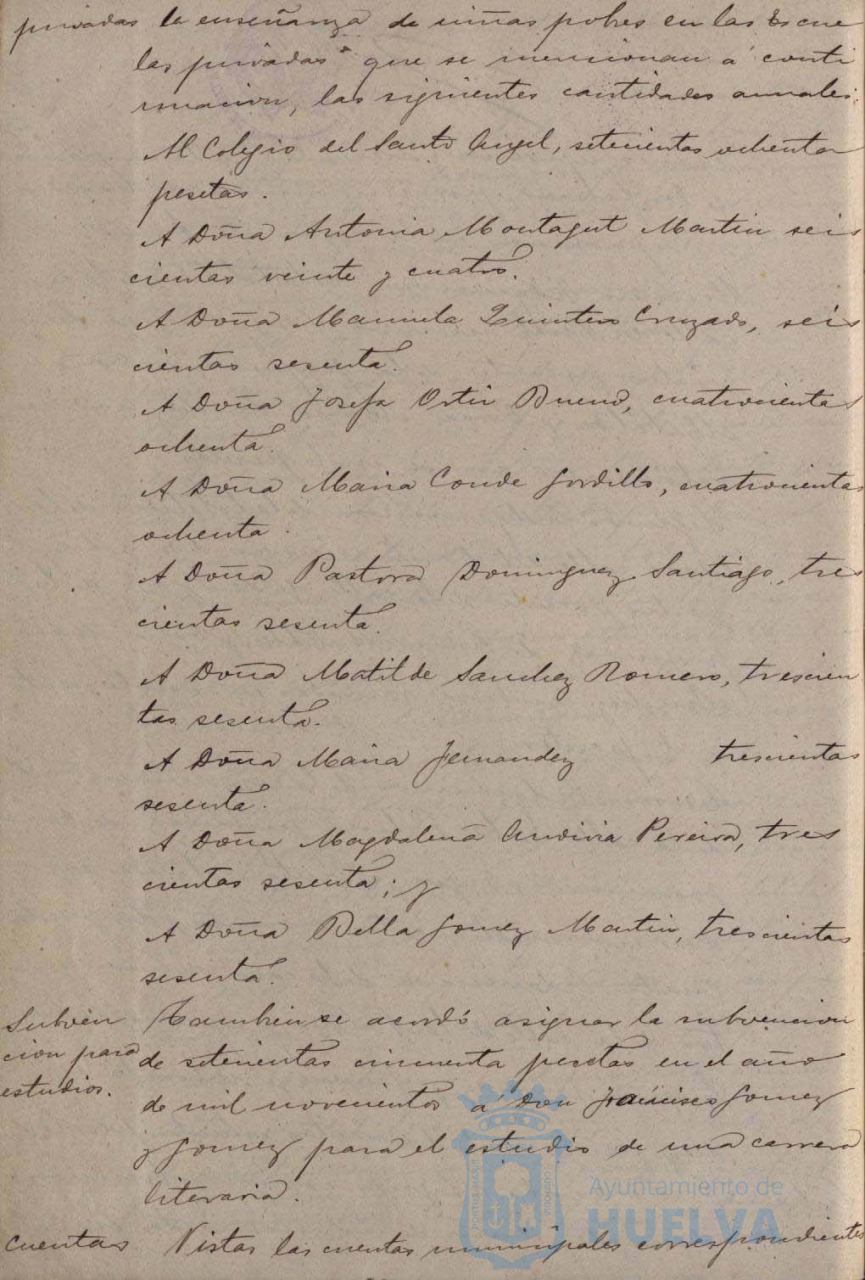 privadas la enseñanza de niñas pobres en las Escue
las privadas que se mencionan á conti
nuacion, las siguientes cantidades anuales:
Al Colegio del Santo Angel, setecientas ochenta
pesetas.
A Doña Antonia Montagut Martin seis
cientas veinte y cuatro.
A Doña Manuela Quintero Cruzado, seis
cientas sesenta.
A Doña Josefa Ortiz Bueno, cuatrocientas
ochenta.
A Doña Maria Conde Gordillo, cuatrocientas
ochenta.
A Doña Pastora Dominguez Santiago, tres
cientas sesenta.
A Doña Matilde Sanchez Romero, trescien
tas sesenta.
A Doña Maria Fernandez trescientas
sesenta.
A Doña Magdalena Andivia Pereira, tres
cientas sesenta; y
A Doña Bella Gomez Martin, trescientas
sesenta.
Subven
cion para
estudios.
Tambien se acordó asignar la subvencion
de setecientas cincuenta pesetas en el año
de mil novecientos á Don Francisco Gomez
y Gomez para el estudio de una carrera
literaria.
Cuentas Vistas las cuentas municipales correspondientes
Ayuntamiento de
HUELVA